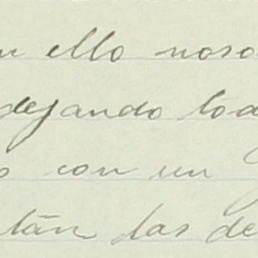 n ello noso
dejando tod
o con un
tán las de